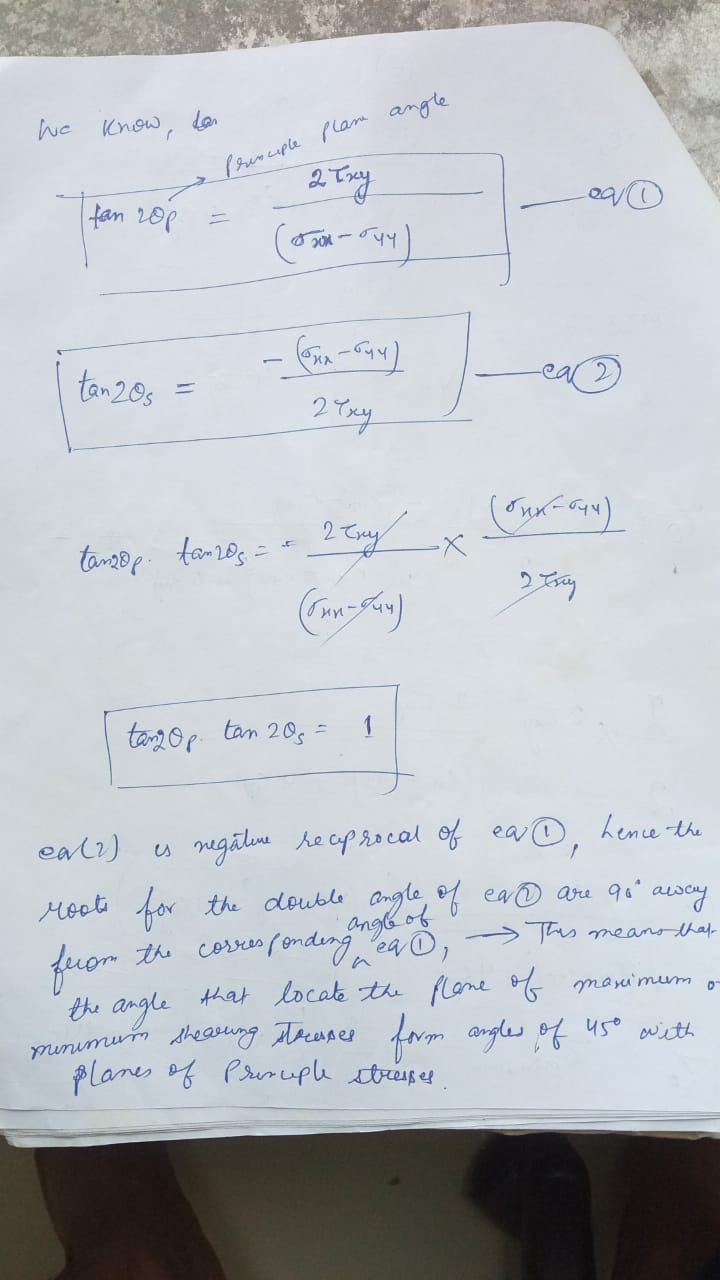 We know, for
Principle plane angle
tan 2θp = 2τxy / (σxx − σyy) — eq ①
tan 2θs = − (σxx − σyy) / 2τxy — eq ②
tan2θp . tan 2θs = - 2τxy / (σxx − σyy) × (σxx − σyy) / 2τxy
tan2θp . tan 2θs = 1
eq(2) is negative reciprocal of eq ①, hence the
roots for the double angle of eq ② are 90° away
from the corresponding angle of eq ①, → This means that
the angle that locate the plane of maximum or
minimum shearing stresses form angles of 45° with
planes of Principle stresses.